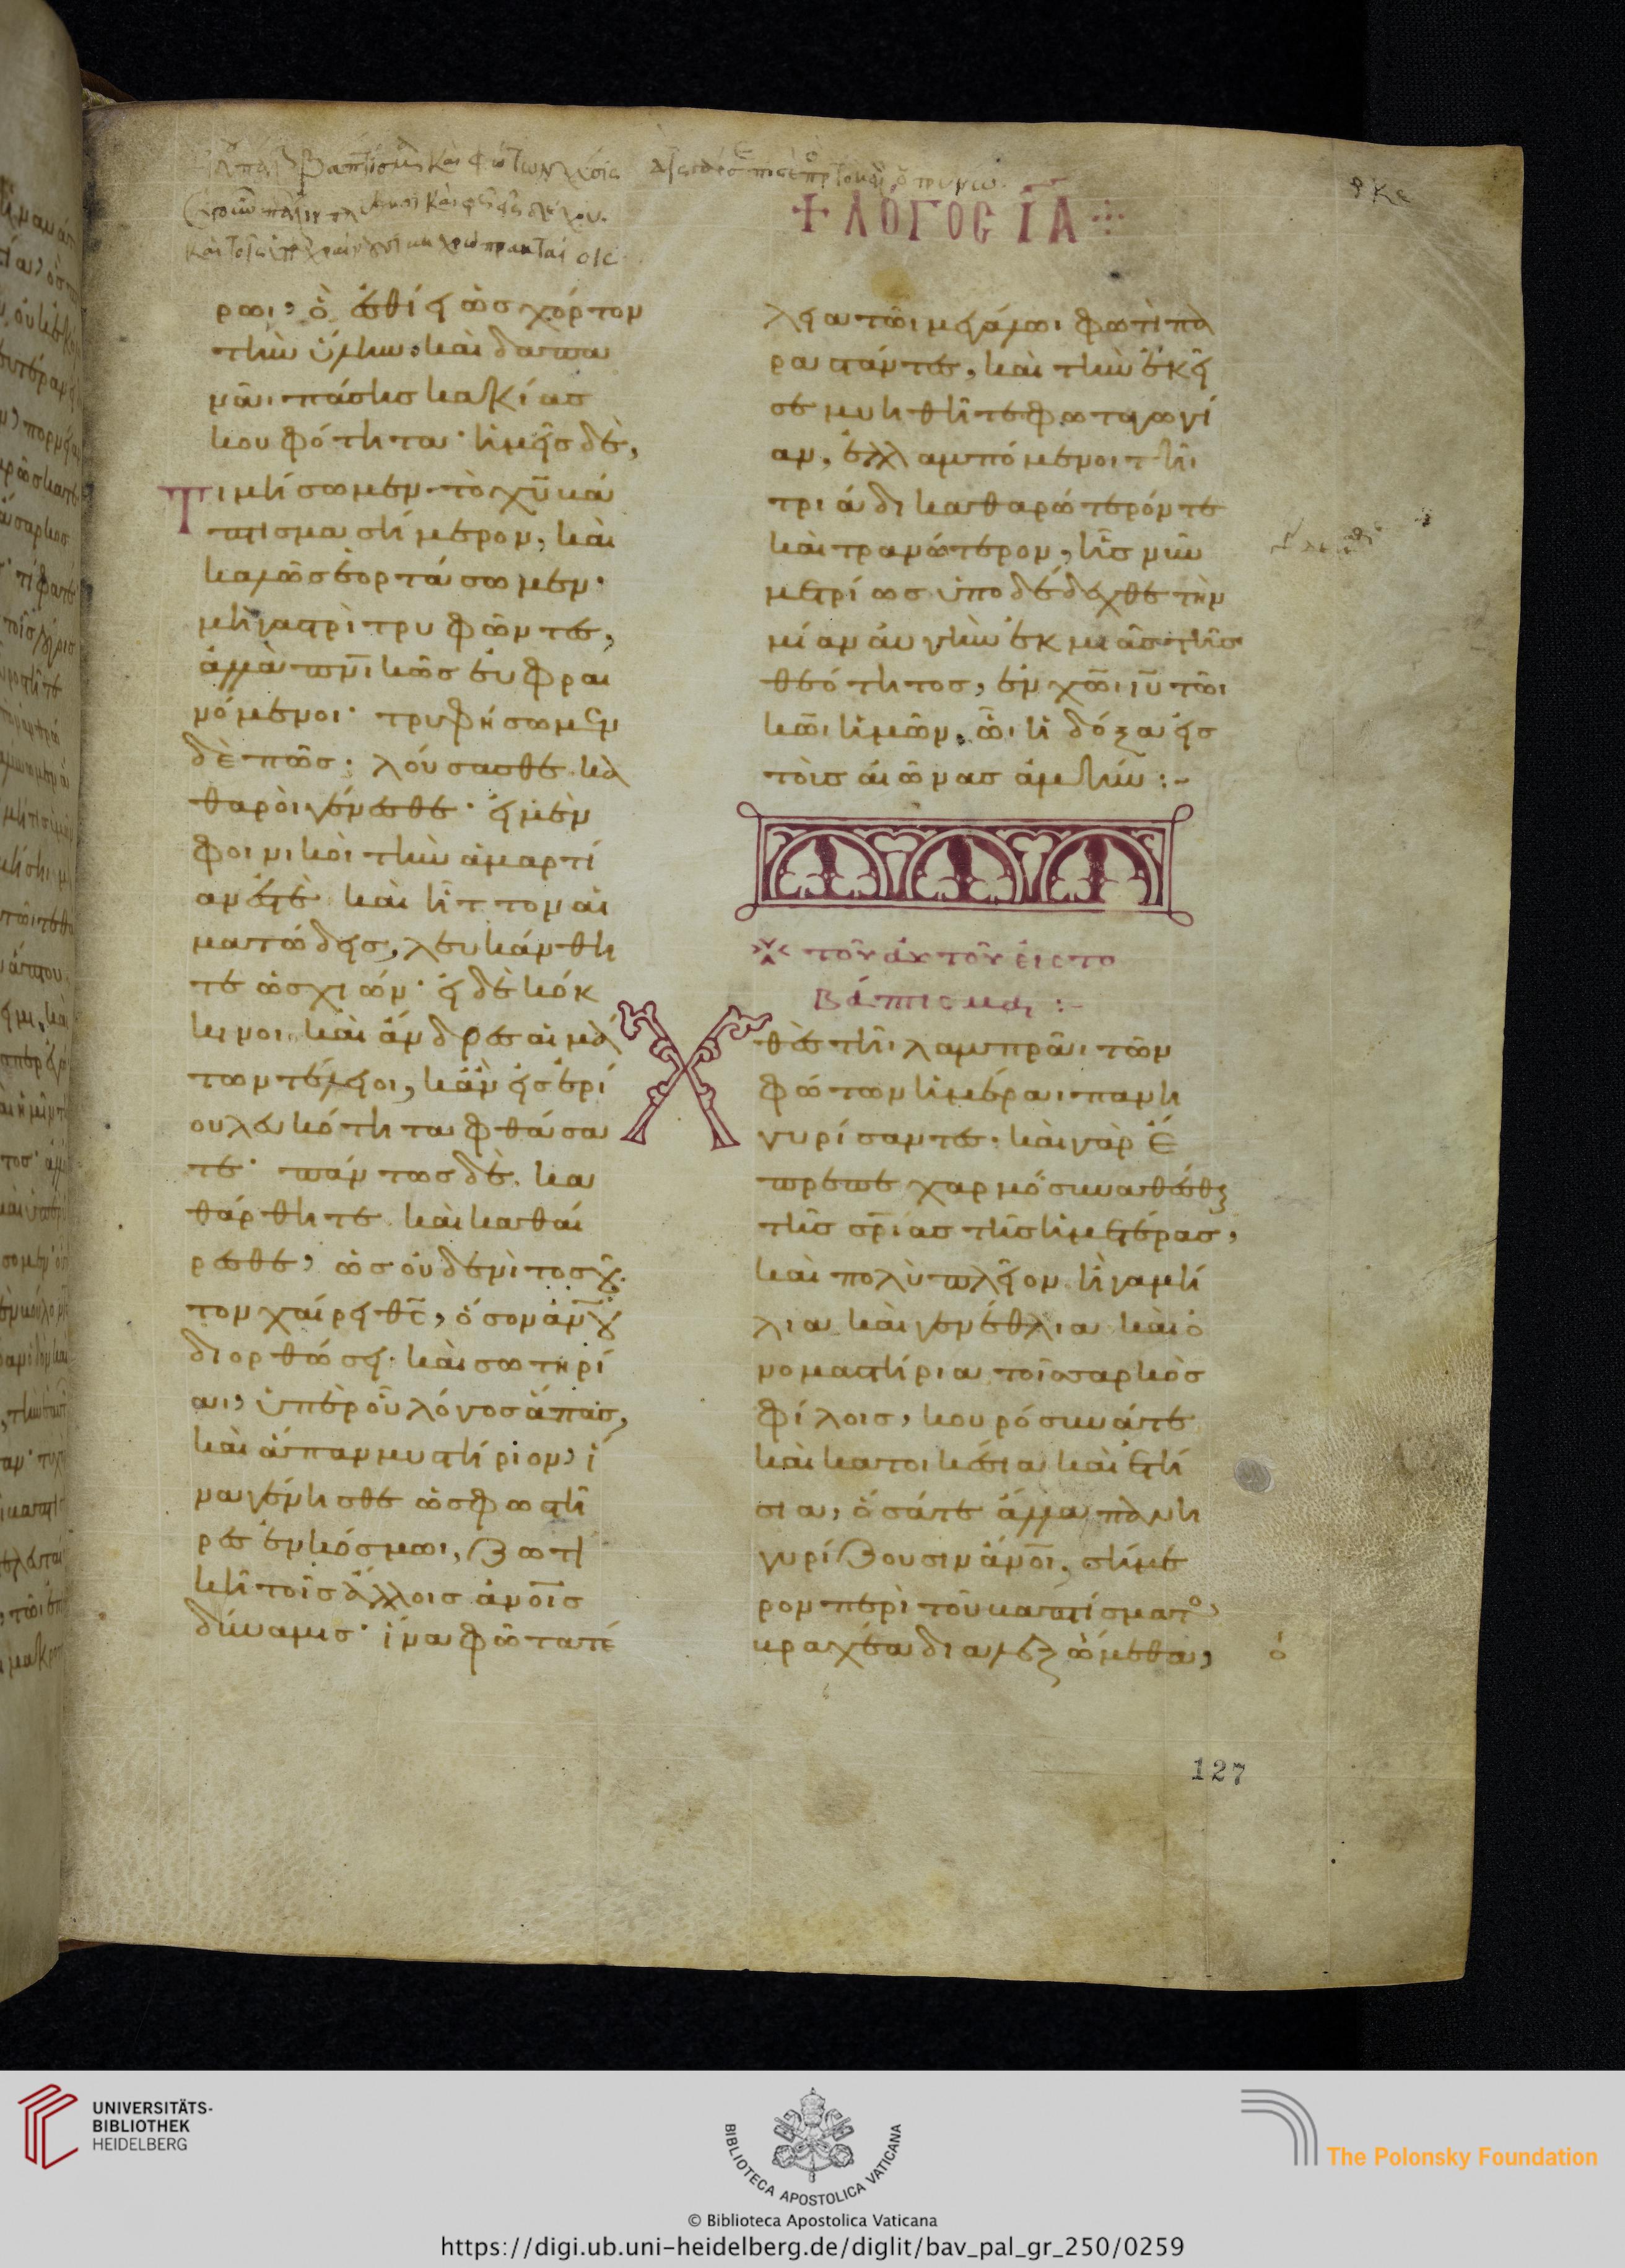 ✝ ΛΟΓΟC ΙΑ
ρκε
ρωι, ὃ ἐσθίει ὡς χόρτον
τὴν ὕλην, καὶ δαπα
νᾶι πάσης κακίας
κουφότητα· ἡμεῖς δὲ,
Τιμήσωμεν τὸ χυ βά
πτισμα σήμερον, καὶ
καλῶς ἑορτάσωμεν·
μὴ γαστρὶ τρυφῶντες,
ἀλλὰ πνικῶς εὐφραι
νόμενοι· τρυφήσωμεν
δὲ πῶς; λούσασθε κα
θαροὶ γένεσθε· εἰ μὲν
φοινικοῖ τὴν ἁμαρτί
αν ἐστὲ καὶ ἧττον αἱ
ματώδεις, λευκάνθη
τε ὡς χιών· εἰ δὲ κόκ
κινοι καὶ ἄνδρες αἱμά
των τέλειοι, κἂν εἰς ἐρί
ου λευκότητα φθάσα
τε· πάντως δὲ κα
θάρθητε καὶ καθαί
ρεσθε, ὡς οὐδενὶ τοσοῦ
τον χαίρει θς, ὅσον ἀνου
διορθώσει καὶ σωτηρί
αι, ὑπὲρ οὗ λόγος ἅπας,
καὶ ἅπαν μυστήριον, ἵ
να γένησθε ὡς φωστῆ
ρες ἐν κόσμωι, ζωτι
κὴ τοῖς ἄλλοις ἀνοις
δύναμις· ἵνα φῶτα τέ
λεια τῶι μεγάλωι φωτὶ πα
ραστάντες, καὶ τὴν ἐκεῖ
σε μυηθῆτε φωταγωγί
αν, ἐλλαμπόμενοι τῆι
τριάδι καθαρώτερόν τε
καὶ τρανώτερον, ἧς νῦν
μετρίως ὑποδέδεχθε τὴν
μίαν αὐγὴν ἐκ μιᾶς τῆς
θεότητος, ἐν χωι ιυ τῶι
κωι ἡμῶν, ὧι ἡ δόξα εἰς
τοὺς αἰῶνας ἀμήν :-
τοῦ αὐτοῦ εἰς τὸ
βάπτισμα :-
Χθὲς τῆι λαμπρᾶι τῶν
φώτων ἡμέραι πανη
γυρίσαντες· καὶ γὰρ ἔ
πρεπε χαρμόσυνα θέσθαι
τῆς σρίας τῆς ἡμετέρας,
καὶ πολὺ πλεῖον ἢ γαμή
λια καὶ γενέθλια καὶ ὀ
νομαστήρια τοῖς σαρκὸς
φίλοις, κουρόσυνά τε
καὶ κατοικέσια καὶ ἐτή
σια, ὅσά τε ἄλλα πανη
γυρίζουσιν ἄνοι, σήμε
ρον περὶ τοῦ βαπτίσματο
βραχέα διαλεξώμεθα,
127
UNIVERSITÄTS-
BIBLIOTHEK
HEIDELBERG
BIBLIOTECA APOSTOLICA VATICANA
The Polonsky Foundation
© Biblioteca Apostolica Vaticana
https://digi.ub.uni-heidelberg.de/diglit/bav_pal_gr_250/0259